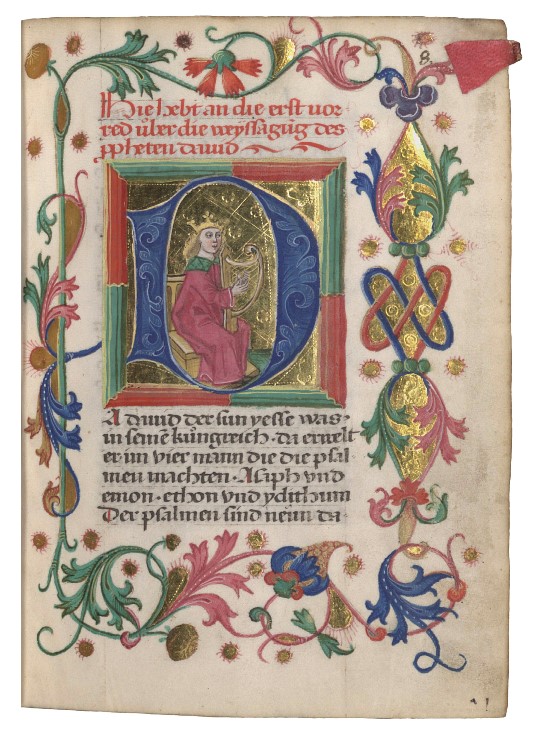 8.
Hie hebt an die erst vor
red über die weyssagūg des
ppheten dauid
DA dauid der sun yesse was
in seinē küngreich · da erwelt
er im vier mann die die psal
men machten · Asaph vnd
emon · ethon vnd ydithum
Der psalmen sind neun da